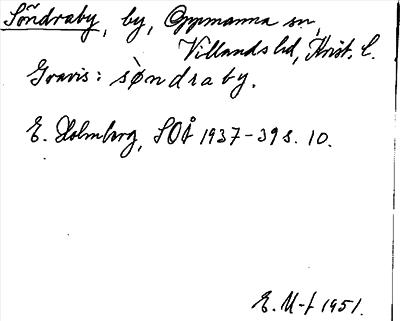 Söndraby, by, Oppmanna sn,
Villands hd, Krist. l.
Gravis: sø̀ndraby.
E. Holmberg, SOÅ 1937-39 s. 10.
E. M-t 1951.